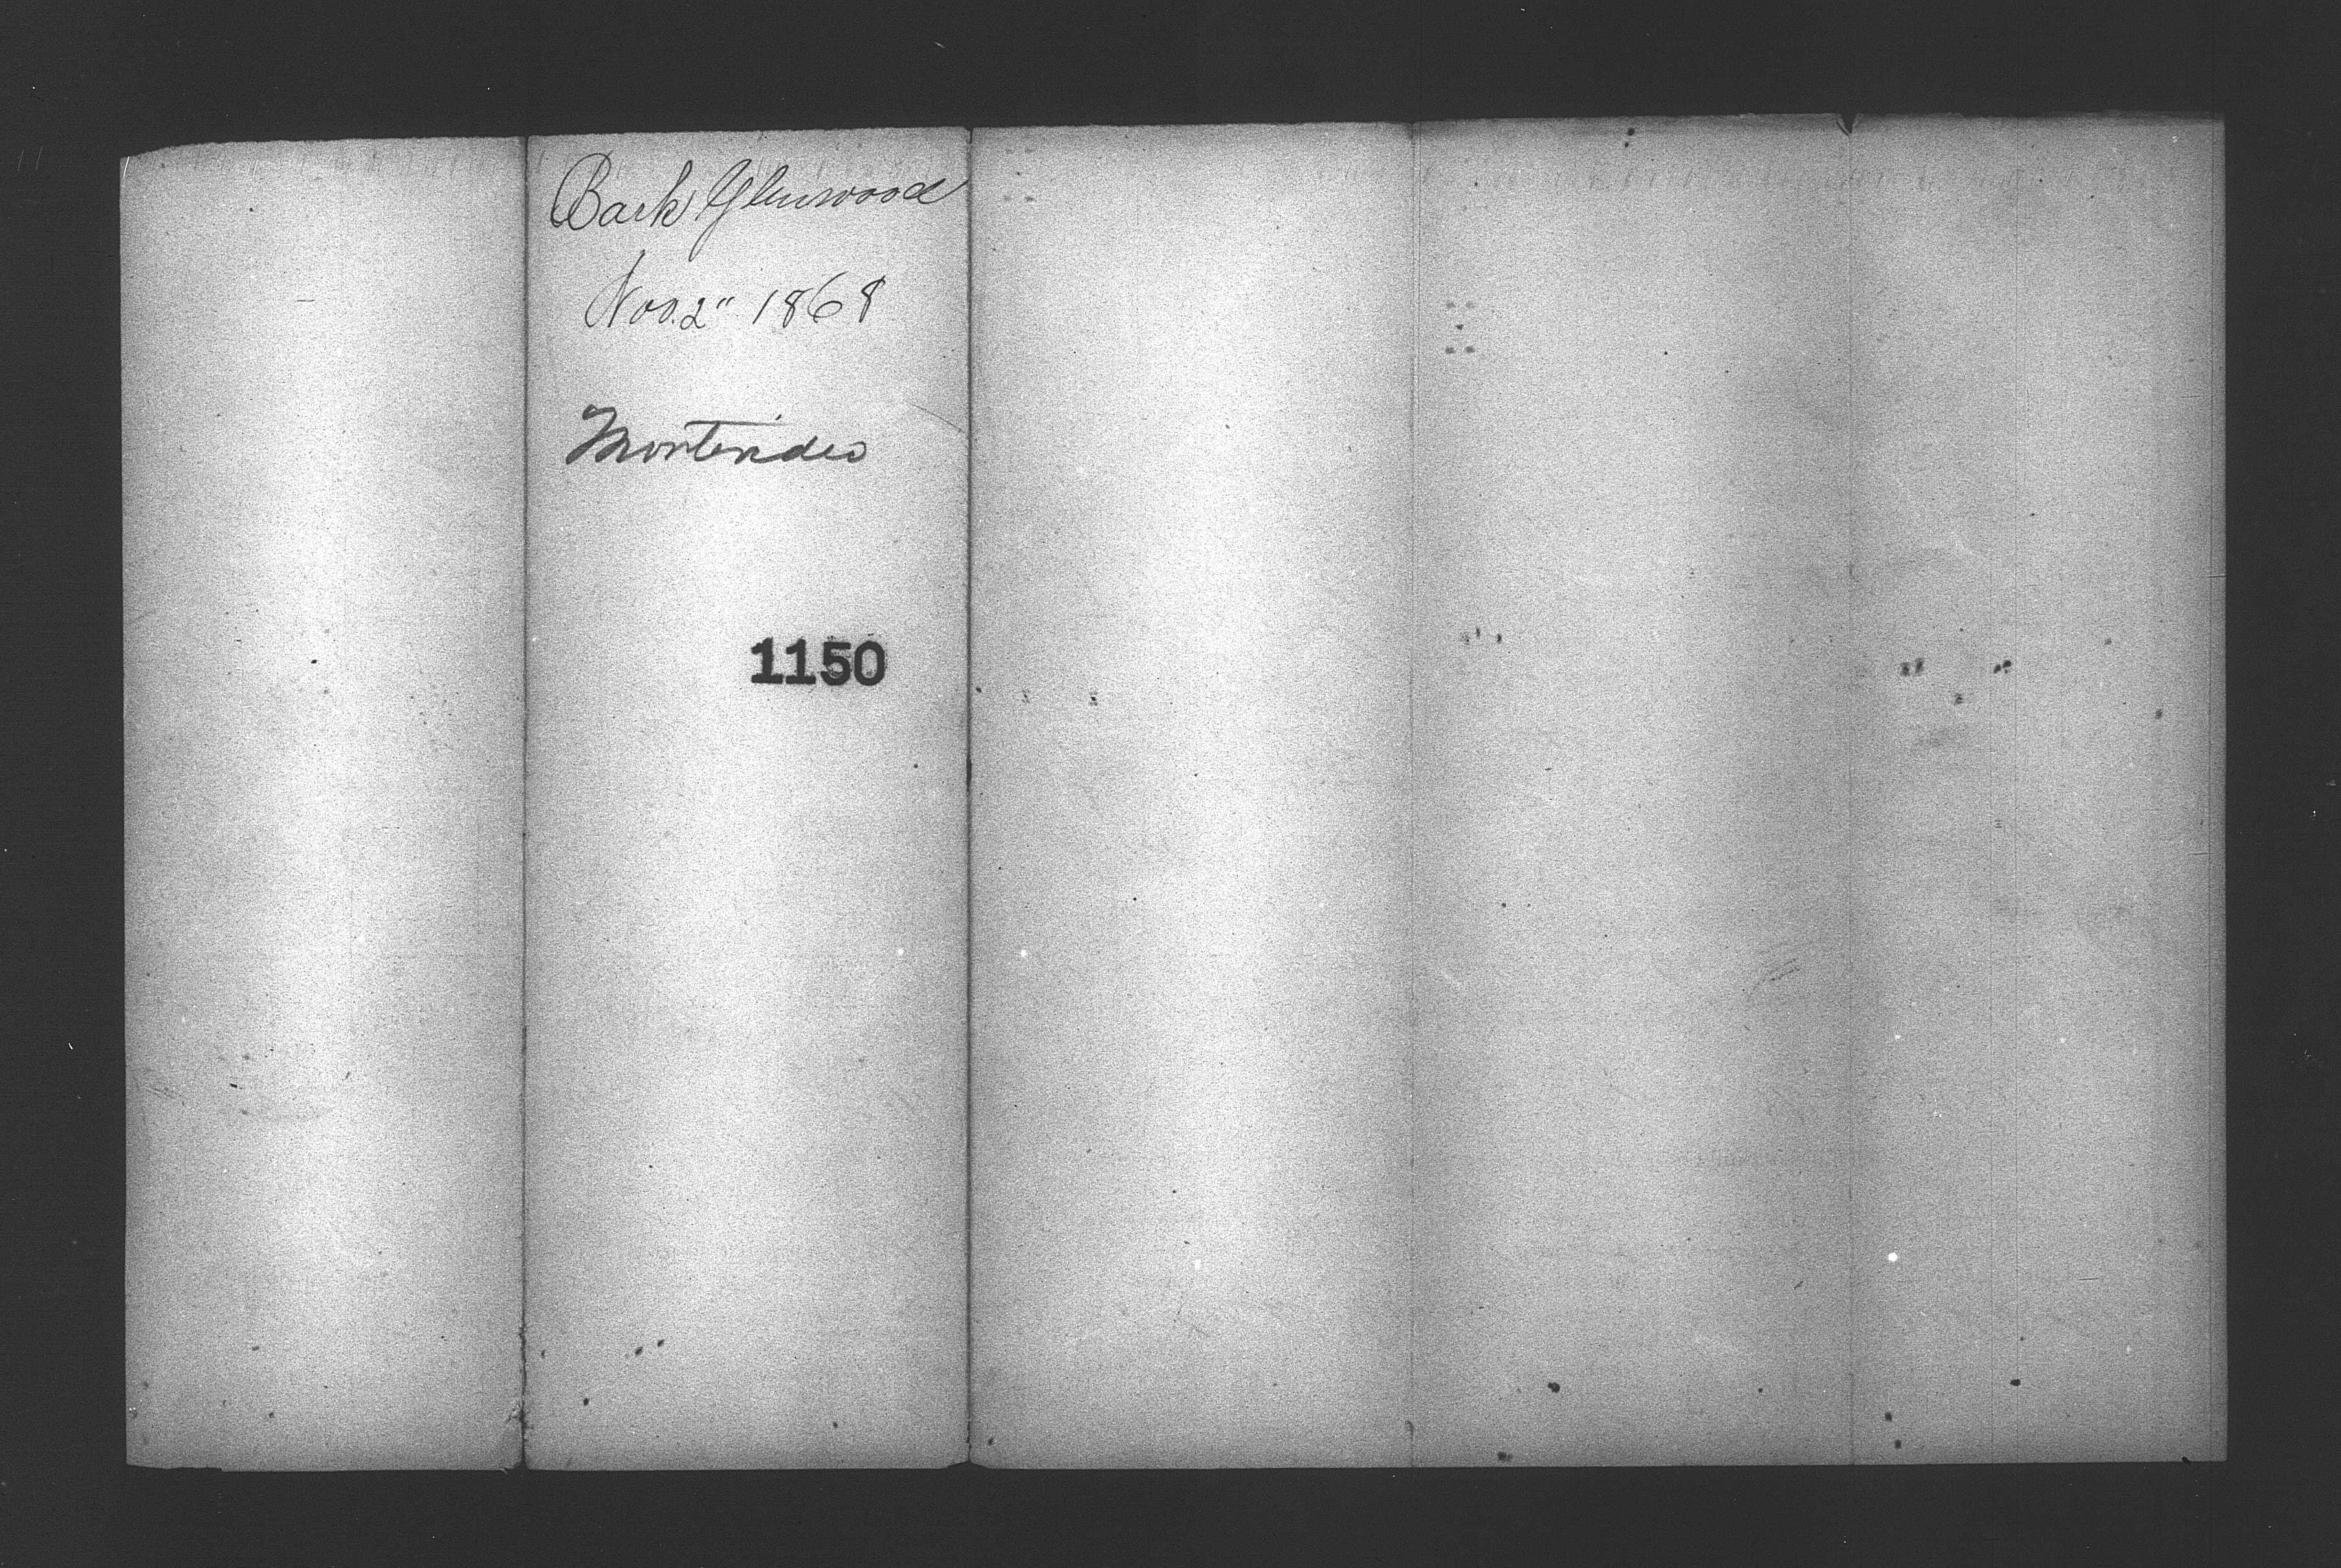 Bark Glenwood
Nov. 2" 1868
Montevideo
1150